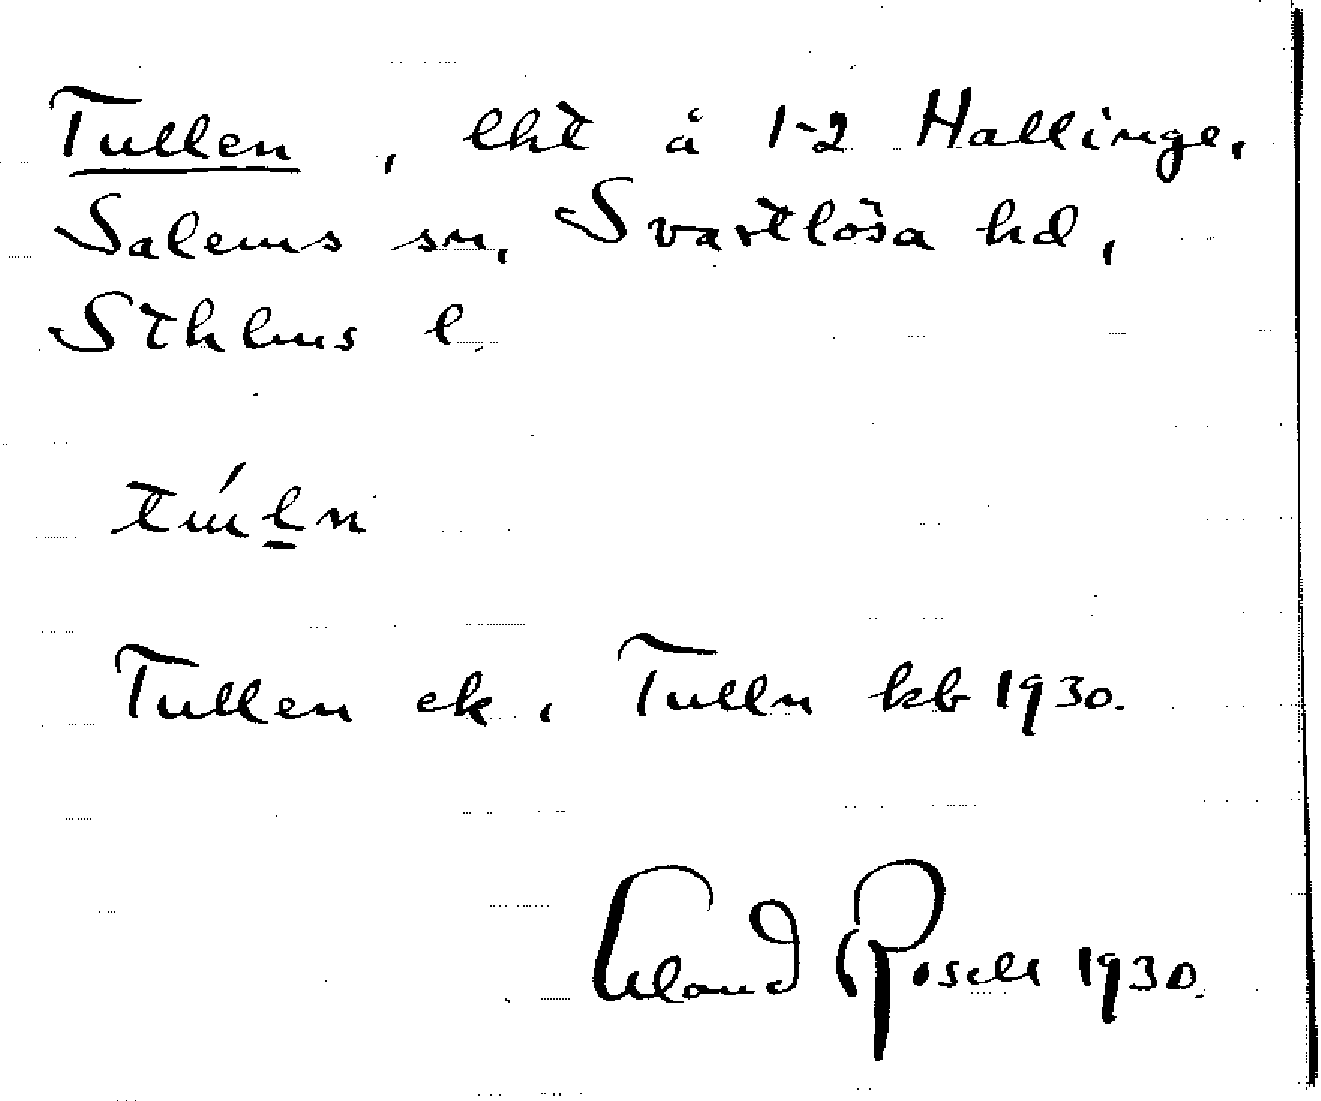 Tullen, lht å 1-2 Hallinge,
Salems sn, Svartlösa hd,
Sthlms l.
Tullen ek, Tulln kb 1930.
Erland Rosell 1930.